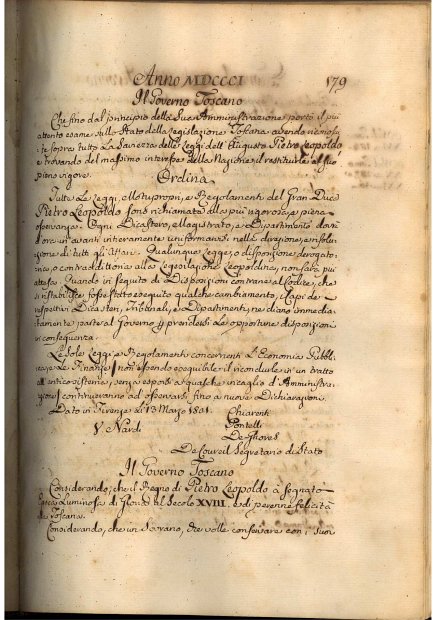 Anno MDCCCI 179
Il Governo Toscano
Che fino dal principio della Sua Amministrazione portò il più
attento esame sullo Stato della Legislazione Toscana avendo riconosciu
te sopra tutto la Saviezza delle Leggi dell'Augusto Pietro Leopoldo
e trovando del massimo interesse della Nazione, il restituirle al suo
pieno vigore.
Ordina
Tutte le Leggi, e Motuproprj, e Regolamenti del Gran Duca
Pietro Leopoldo sono richiamate alla più rigorosa, e piena
osservanza. Ogni Dicastero, e Magistrato, e Dipartimento dovrà
ora in avanti interamente uniformarsi nella direzione, e risolu
zione di tutti gli affari. Qualunque Legge, o disposizione derogato
ria, o contradittoria alla Legislazione Leopoldina, non sarà più
attesa. Quando in seguito di Disposizioni contrarie al Codice, che
si ristabilisce fosse stato eseguito qualche cambiamento, i Capi de
respettivi Dicasteri, Tribunali, e Dipartimenti, ne diano immedia
tamente parte al Governo per prendersi le opportune disposizioni
in conseguenza.
Le Sole Leggi, e Regolamenti concernenti l'Economia Pubbli
ca, e le Finanze non essendo eseguibile il ricondurle in un tratto
all'antico sistema, senza esporsi a qualche incaglio d'Amministra
zione continueranno ad osservarsi fino a nuove Dichiarazioni.
Dato in Firenze li 13 Marzo 1801.
Chiarenti
Pontelli
V. Nardi
De Ghores
De Coureil Segretario di Stato
Il Governo Toscano
Considerando, che il Regno di Pietro Leopoldo à segnato
Epoca Luminosa di Gloria al Secolo XVIII. e di perenne felicità
di Toscana.
Considerando, che un Sovrano, che volle conservare con i suoi